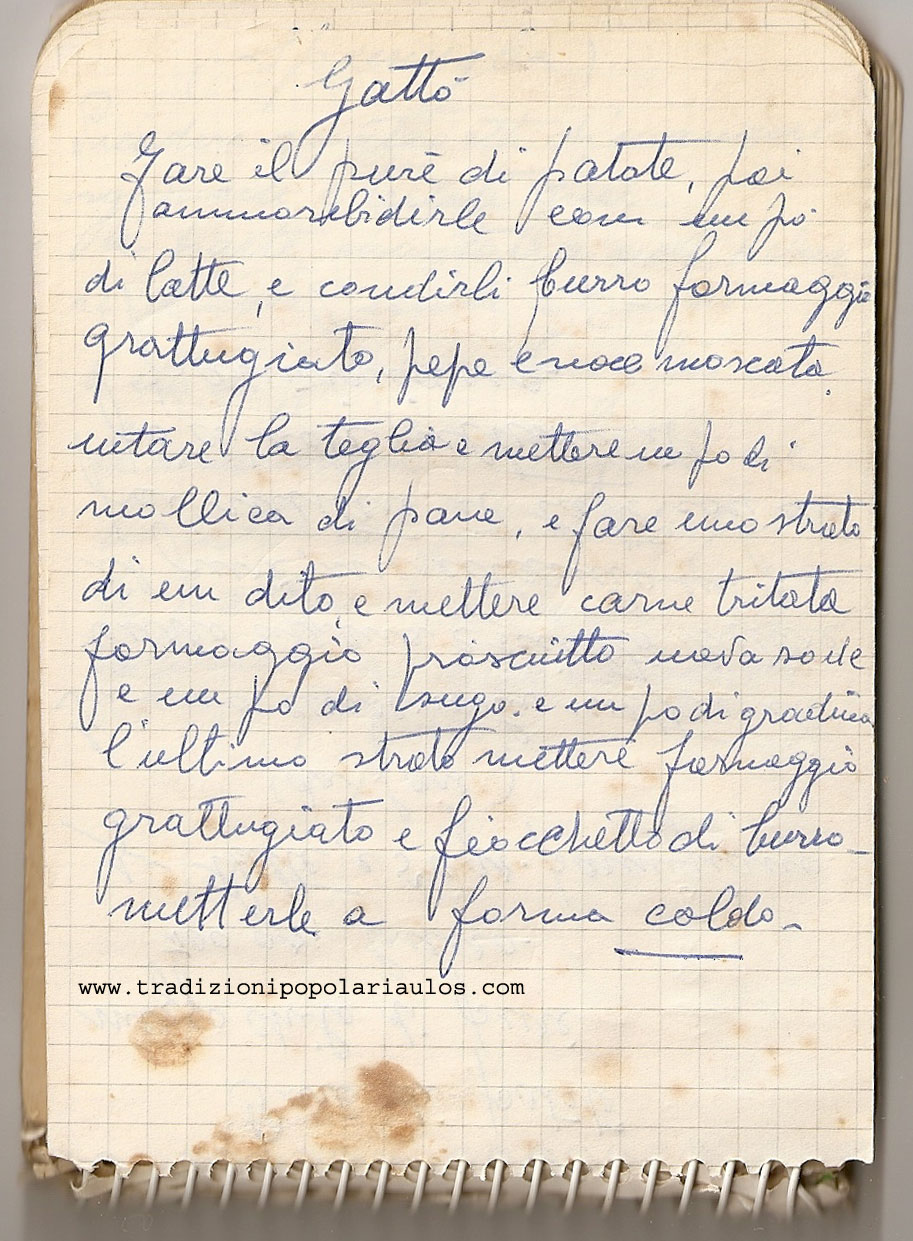 Gattò
Fare il purè di patate, poi
ammorbidirle con un pò
di latte, e condirli burro formaggio
grattugiato, pepe e noce moscata.
untare la teglia e mettere un po di
mollica di pane, e fare uno strato
di un dito, e mettere carne tritata
formaggio prosciutto uova sode
e un po di sugo. e un po di gradina
l'ultimo strato mettere formaggio
grattugiato e fiocchetto di burro_
metterle a forma caldo_
www.tradizionipopolariaulos.com